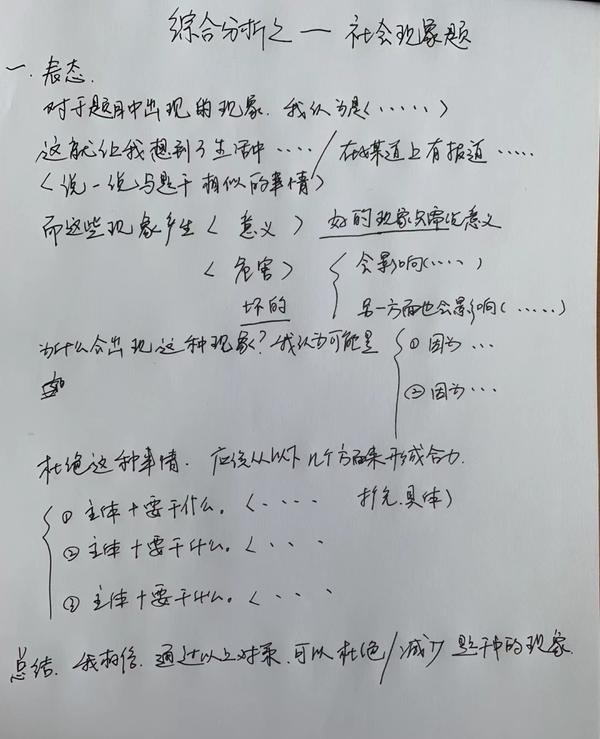 综合分析之一 社会现象题
一. 表态.
对于题目中出现的现象. 我认为是(······)
这就让我想到了生活中····/在某道上有报道·····
<说一说与题干相似的事情>
而这些现象产生<意义> 好的现象只需说意义
<危害> { 会影响(·····)
坏的 另一方面也会影响(·····)
为什么会出现这种现象? 我认为可能是 { ① 因为···
② 因为···
杜绝这种事情. 应该从以下几个方面来形成合力.
{ ① 主体+要干什么. <···· 扩充.具体)
② 主体+要干什么. <····
③ 主体+要干什么. <····
总结. 我相信. 通过以上对策. 可以杜绝/减少 题干中的现象.